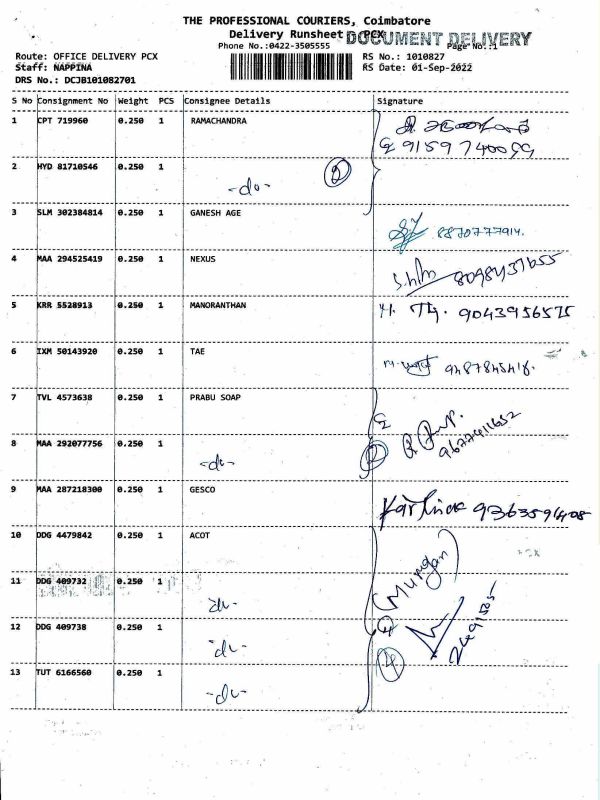 THE PROFESSIONAL COURIERS, Coimbatore
Delivery Runsheet PCX
DOCUMENT DELIVERY
Phone No.:0422-3505555
Page No.:1
Route: OFFICE DELIVERY PCX
RS No.: 1010827
Staff: NAPPINA
RS Date: 01-Sep-2022
DRS No.: DCJB101082701
S No Consignment No Weight PCS Consignee Details Signature
1 CPT 719960 0.250 1 RAMACHANDRA
9159740099
2 HYD 81710546 0.250 1
-do- 2
3 SLM 302384814 0.250 1 GANESH AGE
8870777914.
4 MAA 294525419 0.250 1 NEXUS
8098437655
5 KRR 5528913 0.250 1 MANORANTHAN
9043956575
6 IXM 50143920 0.250 1 TAE
9487845418.
7 TVL 4573638 0.250 1 PRABU SOAP
9677411652
8 MAA 292077756 0.250 1
-do- 2
9 MAA 287218300 0.250 1 GESCO
9363591408
10 DDG 4479842 0.250 1 ACOT
11 DDG 409732 0.250 1
-do-
(Murugan)
12 DDG 409738 0.250 1
-do-
4
13 TUT 6166560 0.250 1
-do-